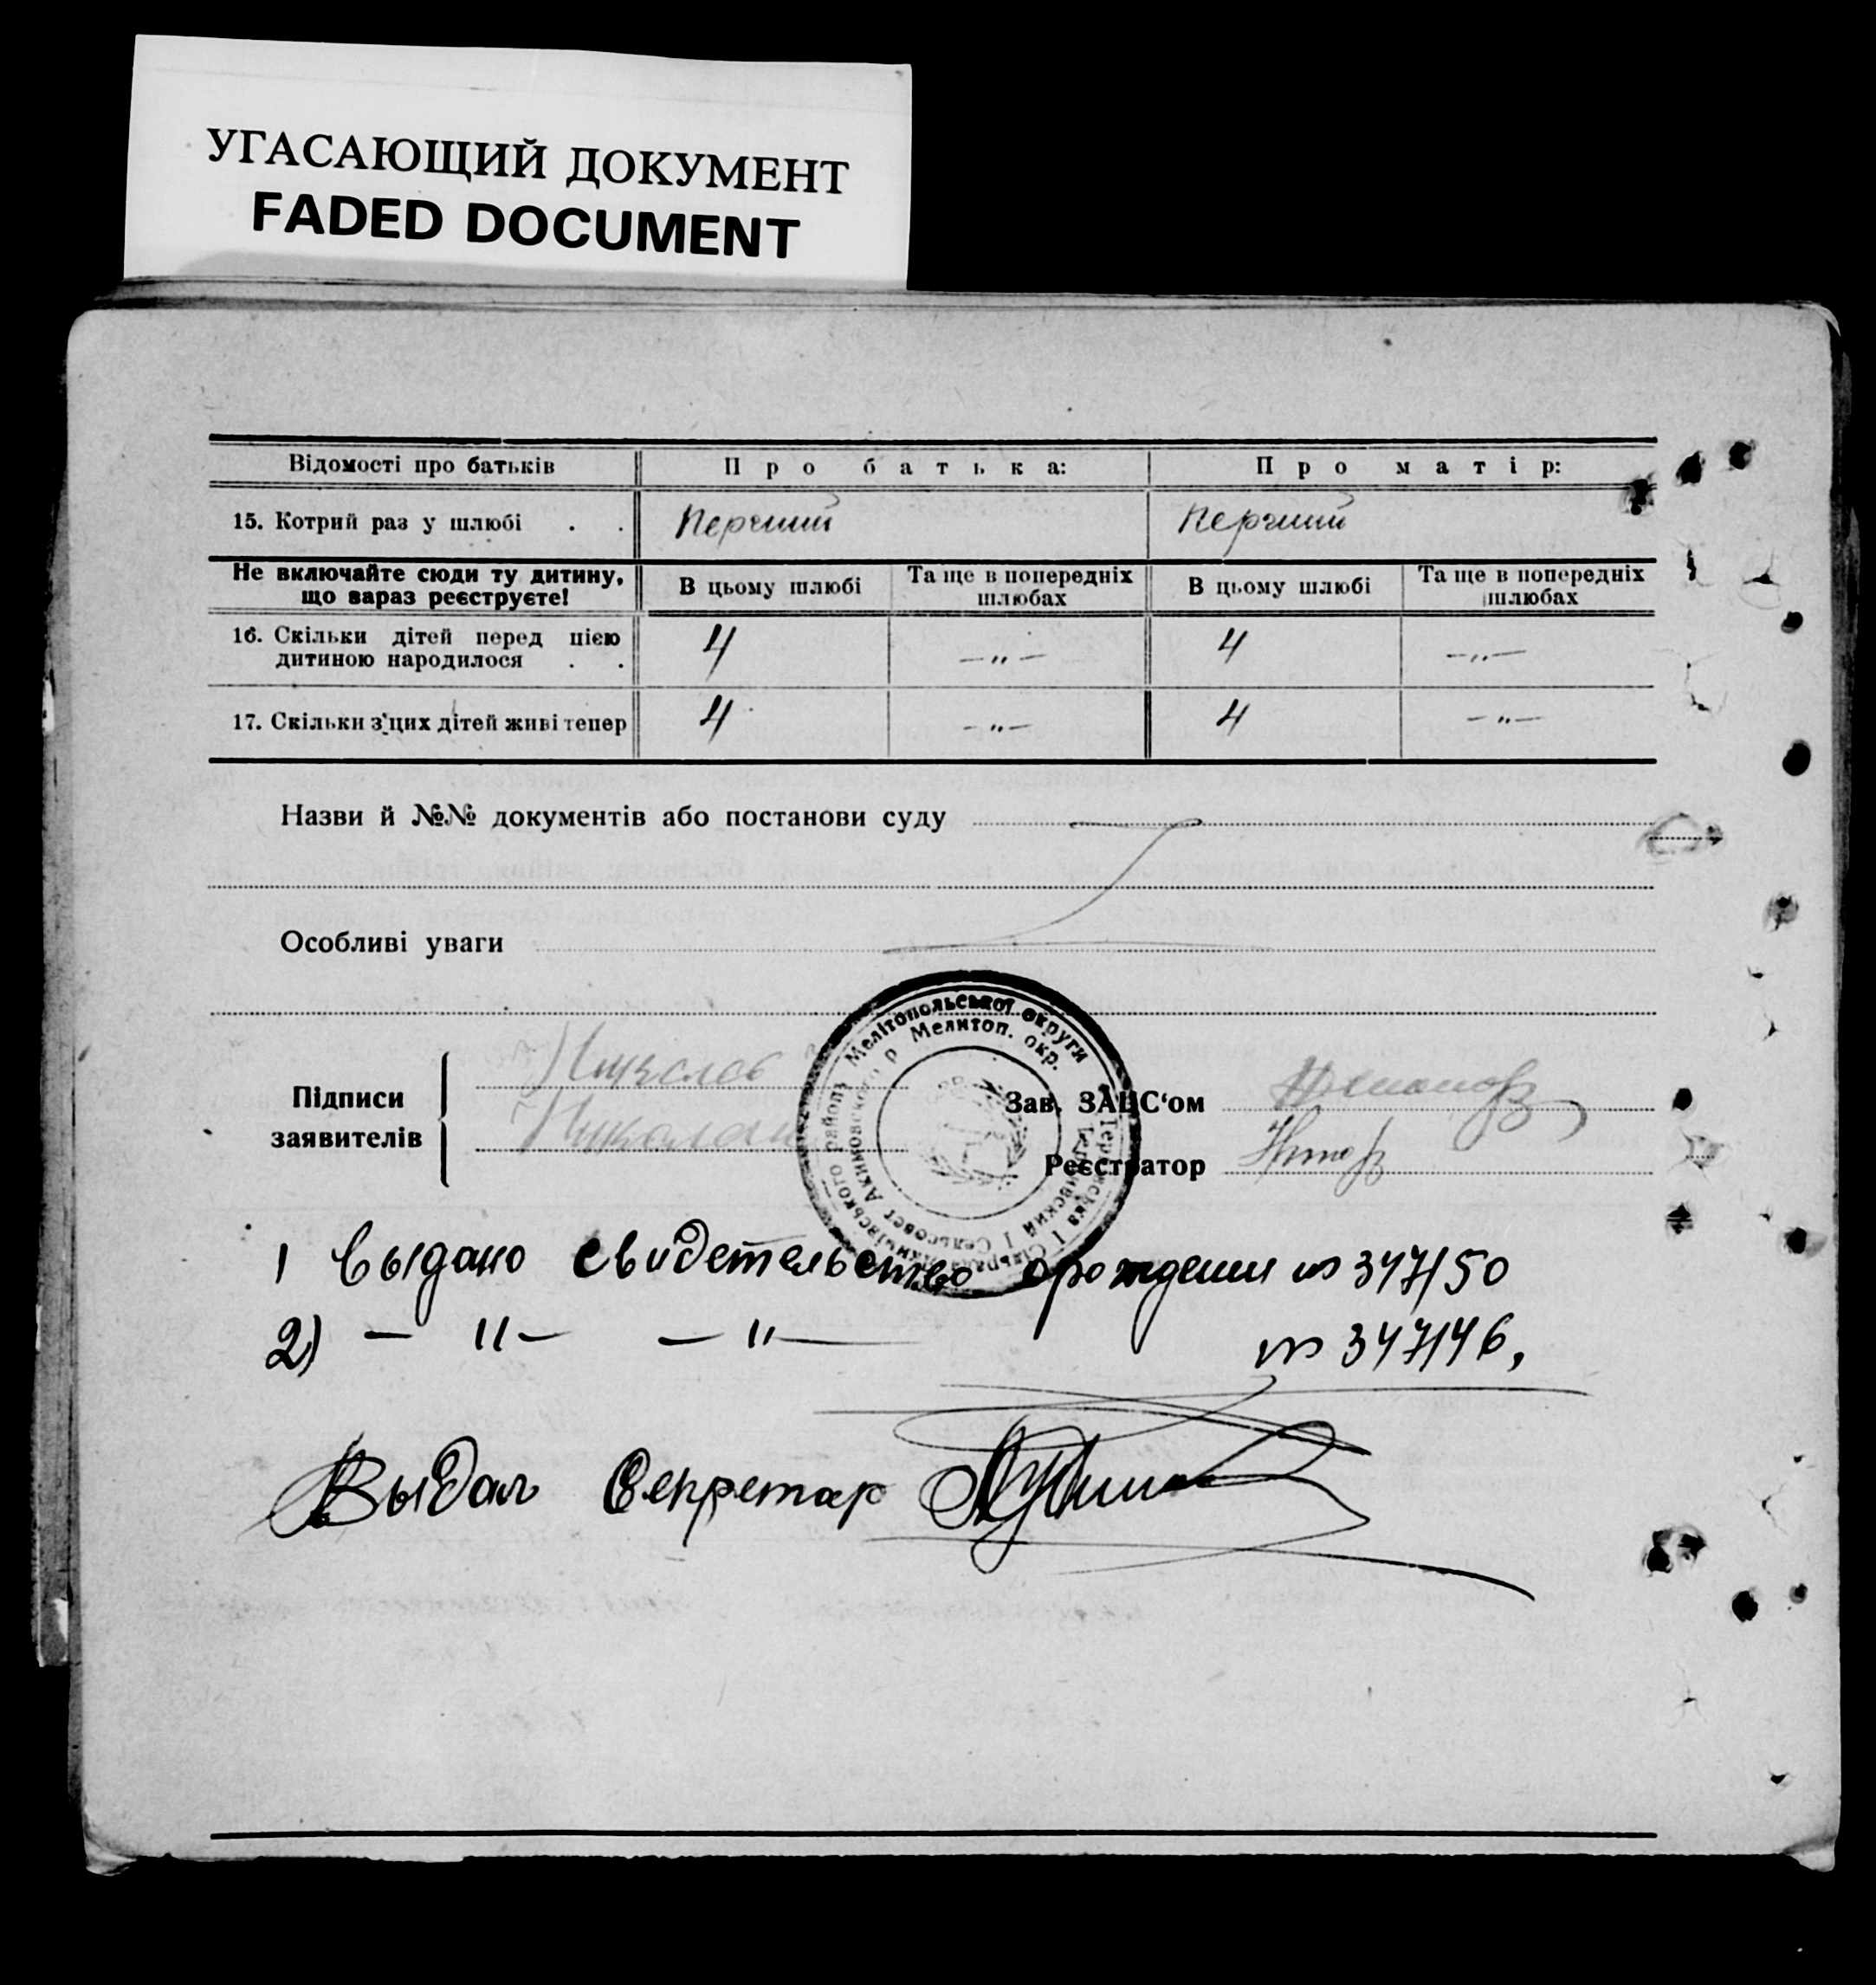 УГАСАЮЩИЙ ДОКУМЕНТ
FADED DOCUMENT
Відомості про батьків Про батька: Про матір:
15. Котрий раз у шлюбі . . Перший Перший
Не включайте сюди ту дитину, що зараз реєструєте! В цьому шлюбі Та ще в попередніх шлюбах В цьому шлюбі Та ще в попередніх шлюбах
16. Скільки дітей перед цією
дитиною народилося . . 4 — „ — 4 — „ —
17. Скільки з'цих дітей живі тепер 4 — „ — 4 — „ —
Назви й №№ документів або постанови суду
Особливі уваги
Мелітопольської округи
р Мелитоп. окр.
району
Акимовского
Сельсовет
Підписи
заявителів
Зав. ЗАЦС‘ом
Реєстратор
1 Выдано свидетельство орождении № 347/50
2) — " — — " — № 347/46,
Выдал Секретар